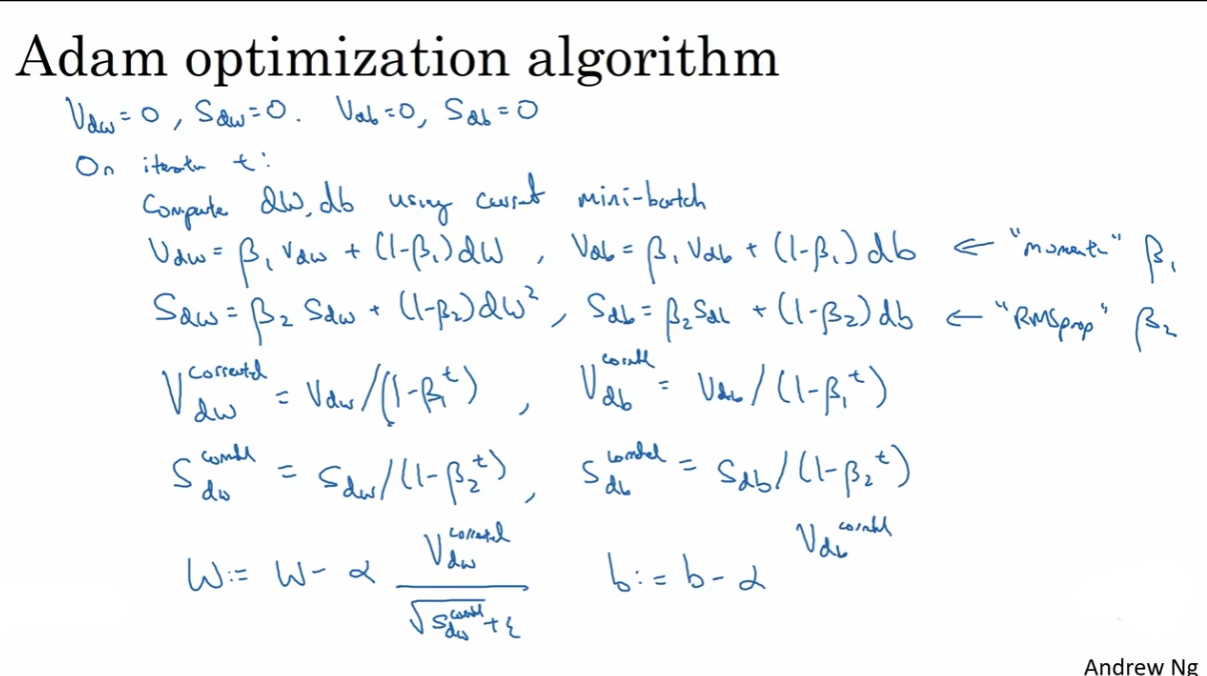 Adam optimization algorithm
V_dw = 0, S_dw = 0. V_db = 0, S_db = 0
On iteratn t:
Compute dW, db using current mini-batch
V_dw = β₁ V_dw + (1-β₁) dW , V_db = β₁ V_db + (1-β₁) db ← "moment" β₁
S_dw = β₂ S_dw + (1-β₂) dW² , S_db = β₂ S_db + (1-β₂) db ← "RMSprop" β₂
V_dw^corrected = V_dw / (1-β₁^t) , V_db^corrected = V_db / (1-β₁^t)
S_dw^corrected = S_dw / (1-β₂^t) , S_db^corrected = S_db / (1-β₂^t)
W := W - α V_dw^corrected / (√S_dw^corrected + ε) b := b - α V_db^corrected
Andrew Ng